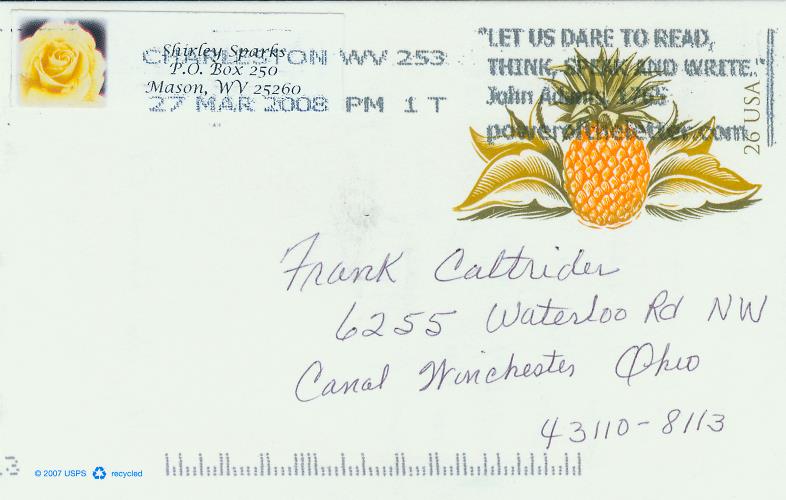 Shirley Sparks
P.O. Box 250
Mason, WV 25260
CHARLESTON WV 253
27 MAR 2008 PM 1 T
"LET US DARE TO READ,
THINK, SPEAK AND WRITE."
John Adams, 1765
poweroftheletter.com
26 USA
Frank Caltrider
6255 Waterloo Rd NW
Canal Winchester Ohio
43110-8113
© 2007 USPS recycled